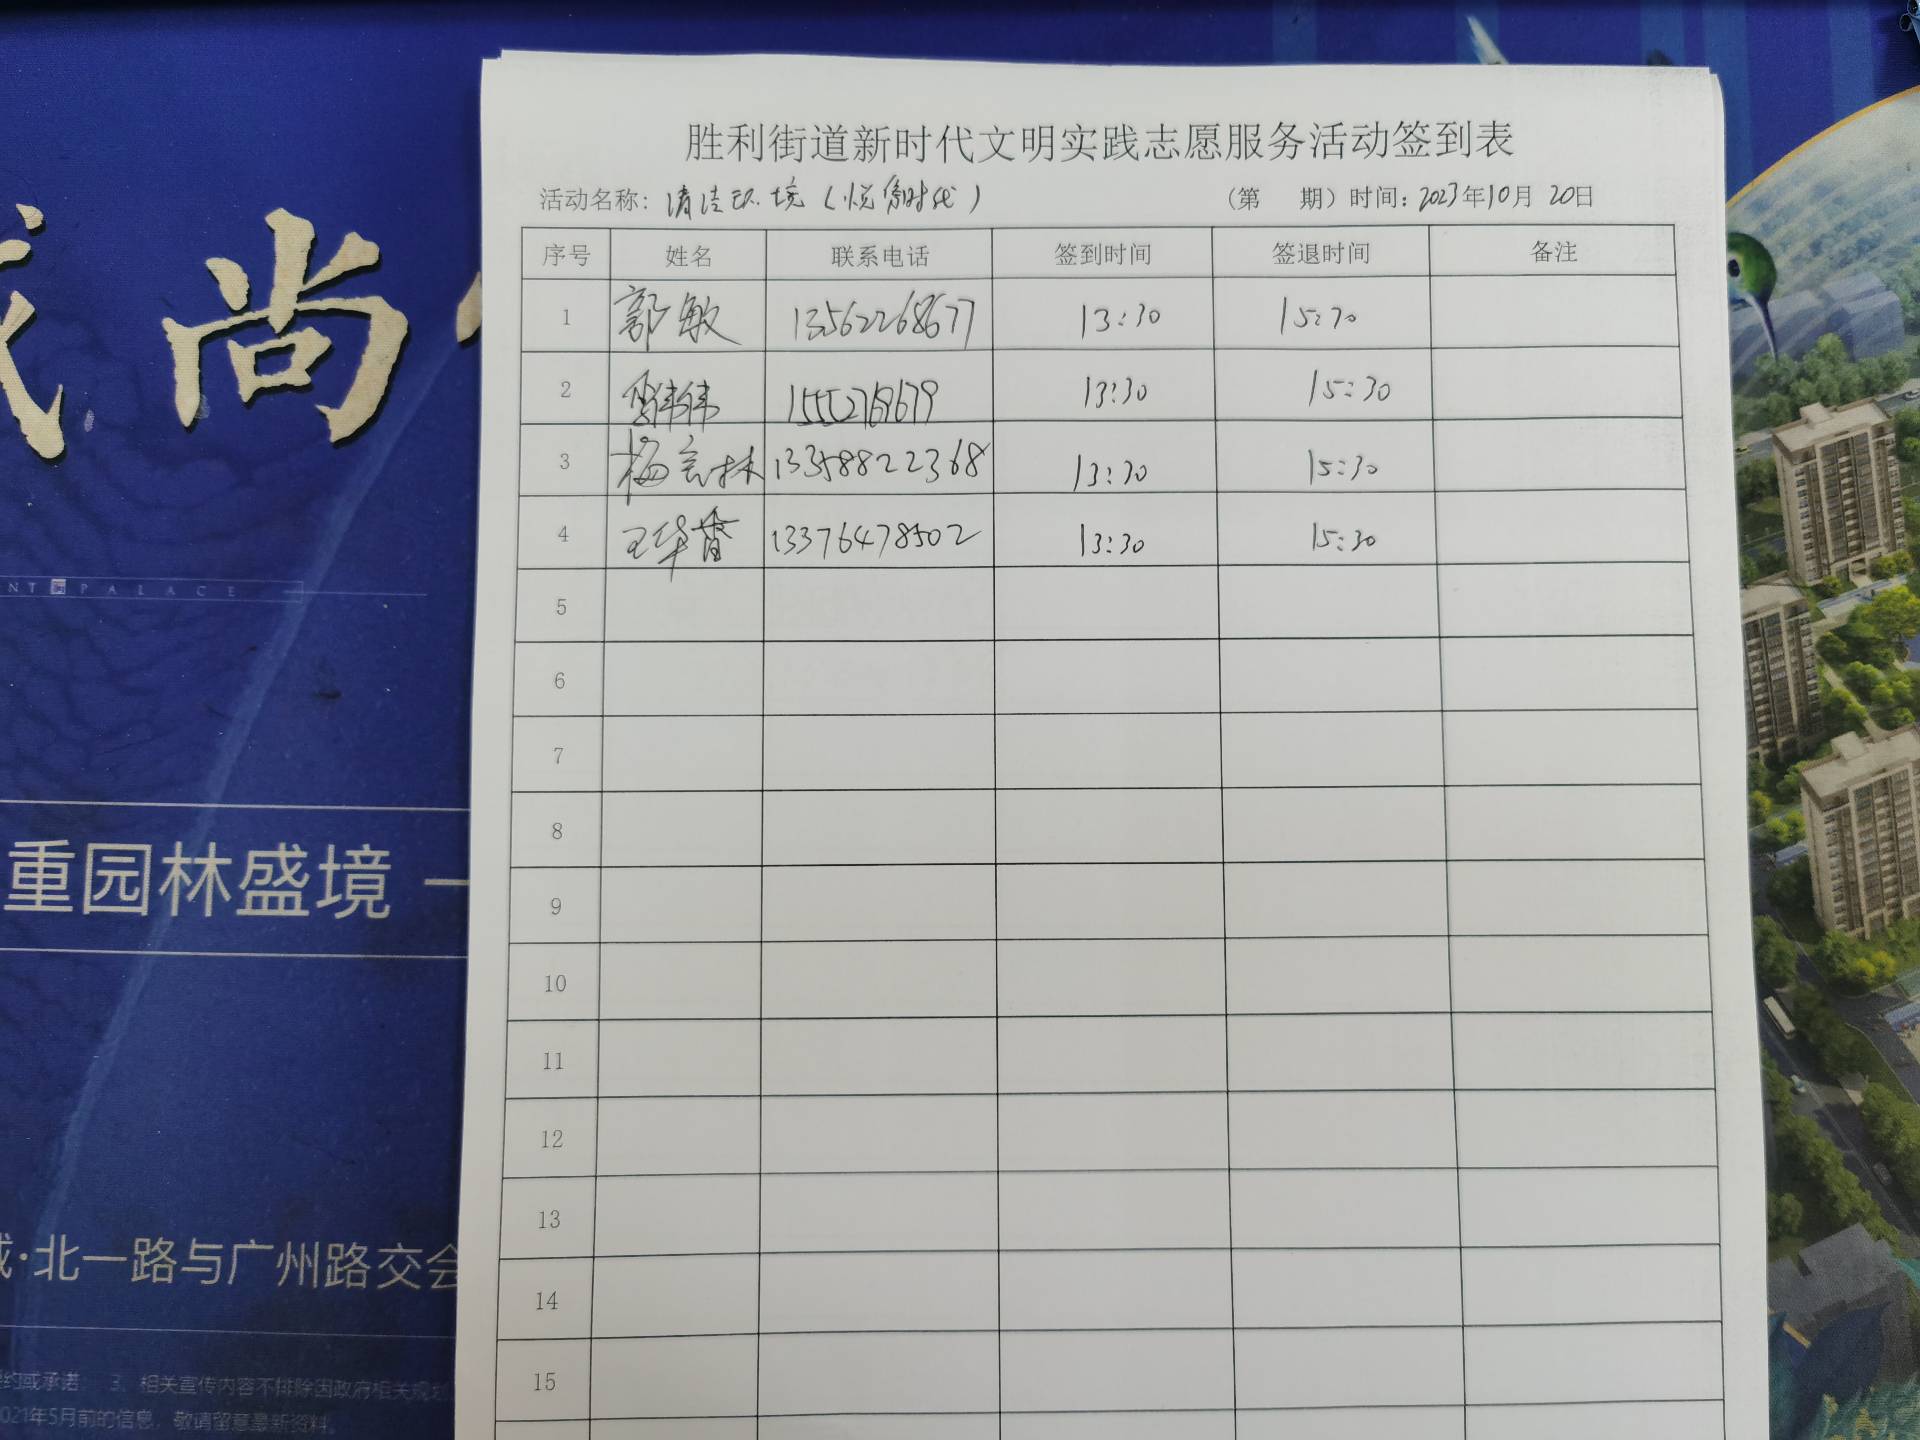 胜利街道新时代文明实践志愿服务活动签到表
活动名称：清洁环境（悦 时代） （第 期）时间：2023年10月20日
序号 姓名 联系电话 签到时间 签退时间 备注
1 郭敏 13562268677 13:30 15:30
2 伟伟 13:30 15:30
3 林 13358822368 13:30 15:30
4 王华 13376478502 13:30 15:30
5
6
7
8
9
10
11
12
13
14
15
尚
NT PALACE
重园林盛境
·北一路与广州路交会
约或承诺 3、相关宣传内容不排除因政府相关规划
021年5月前的信息，敬请留意最新资料。